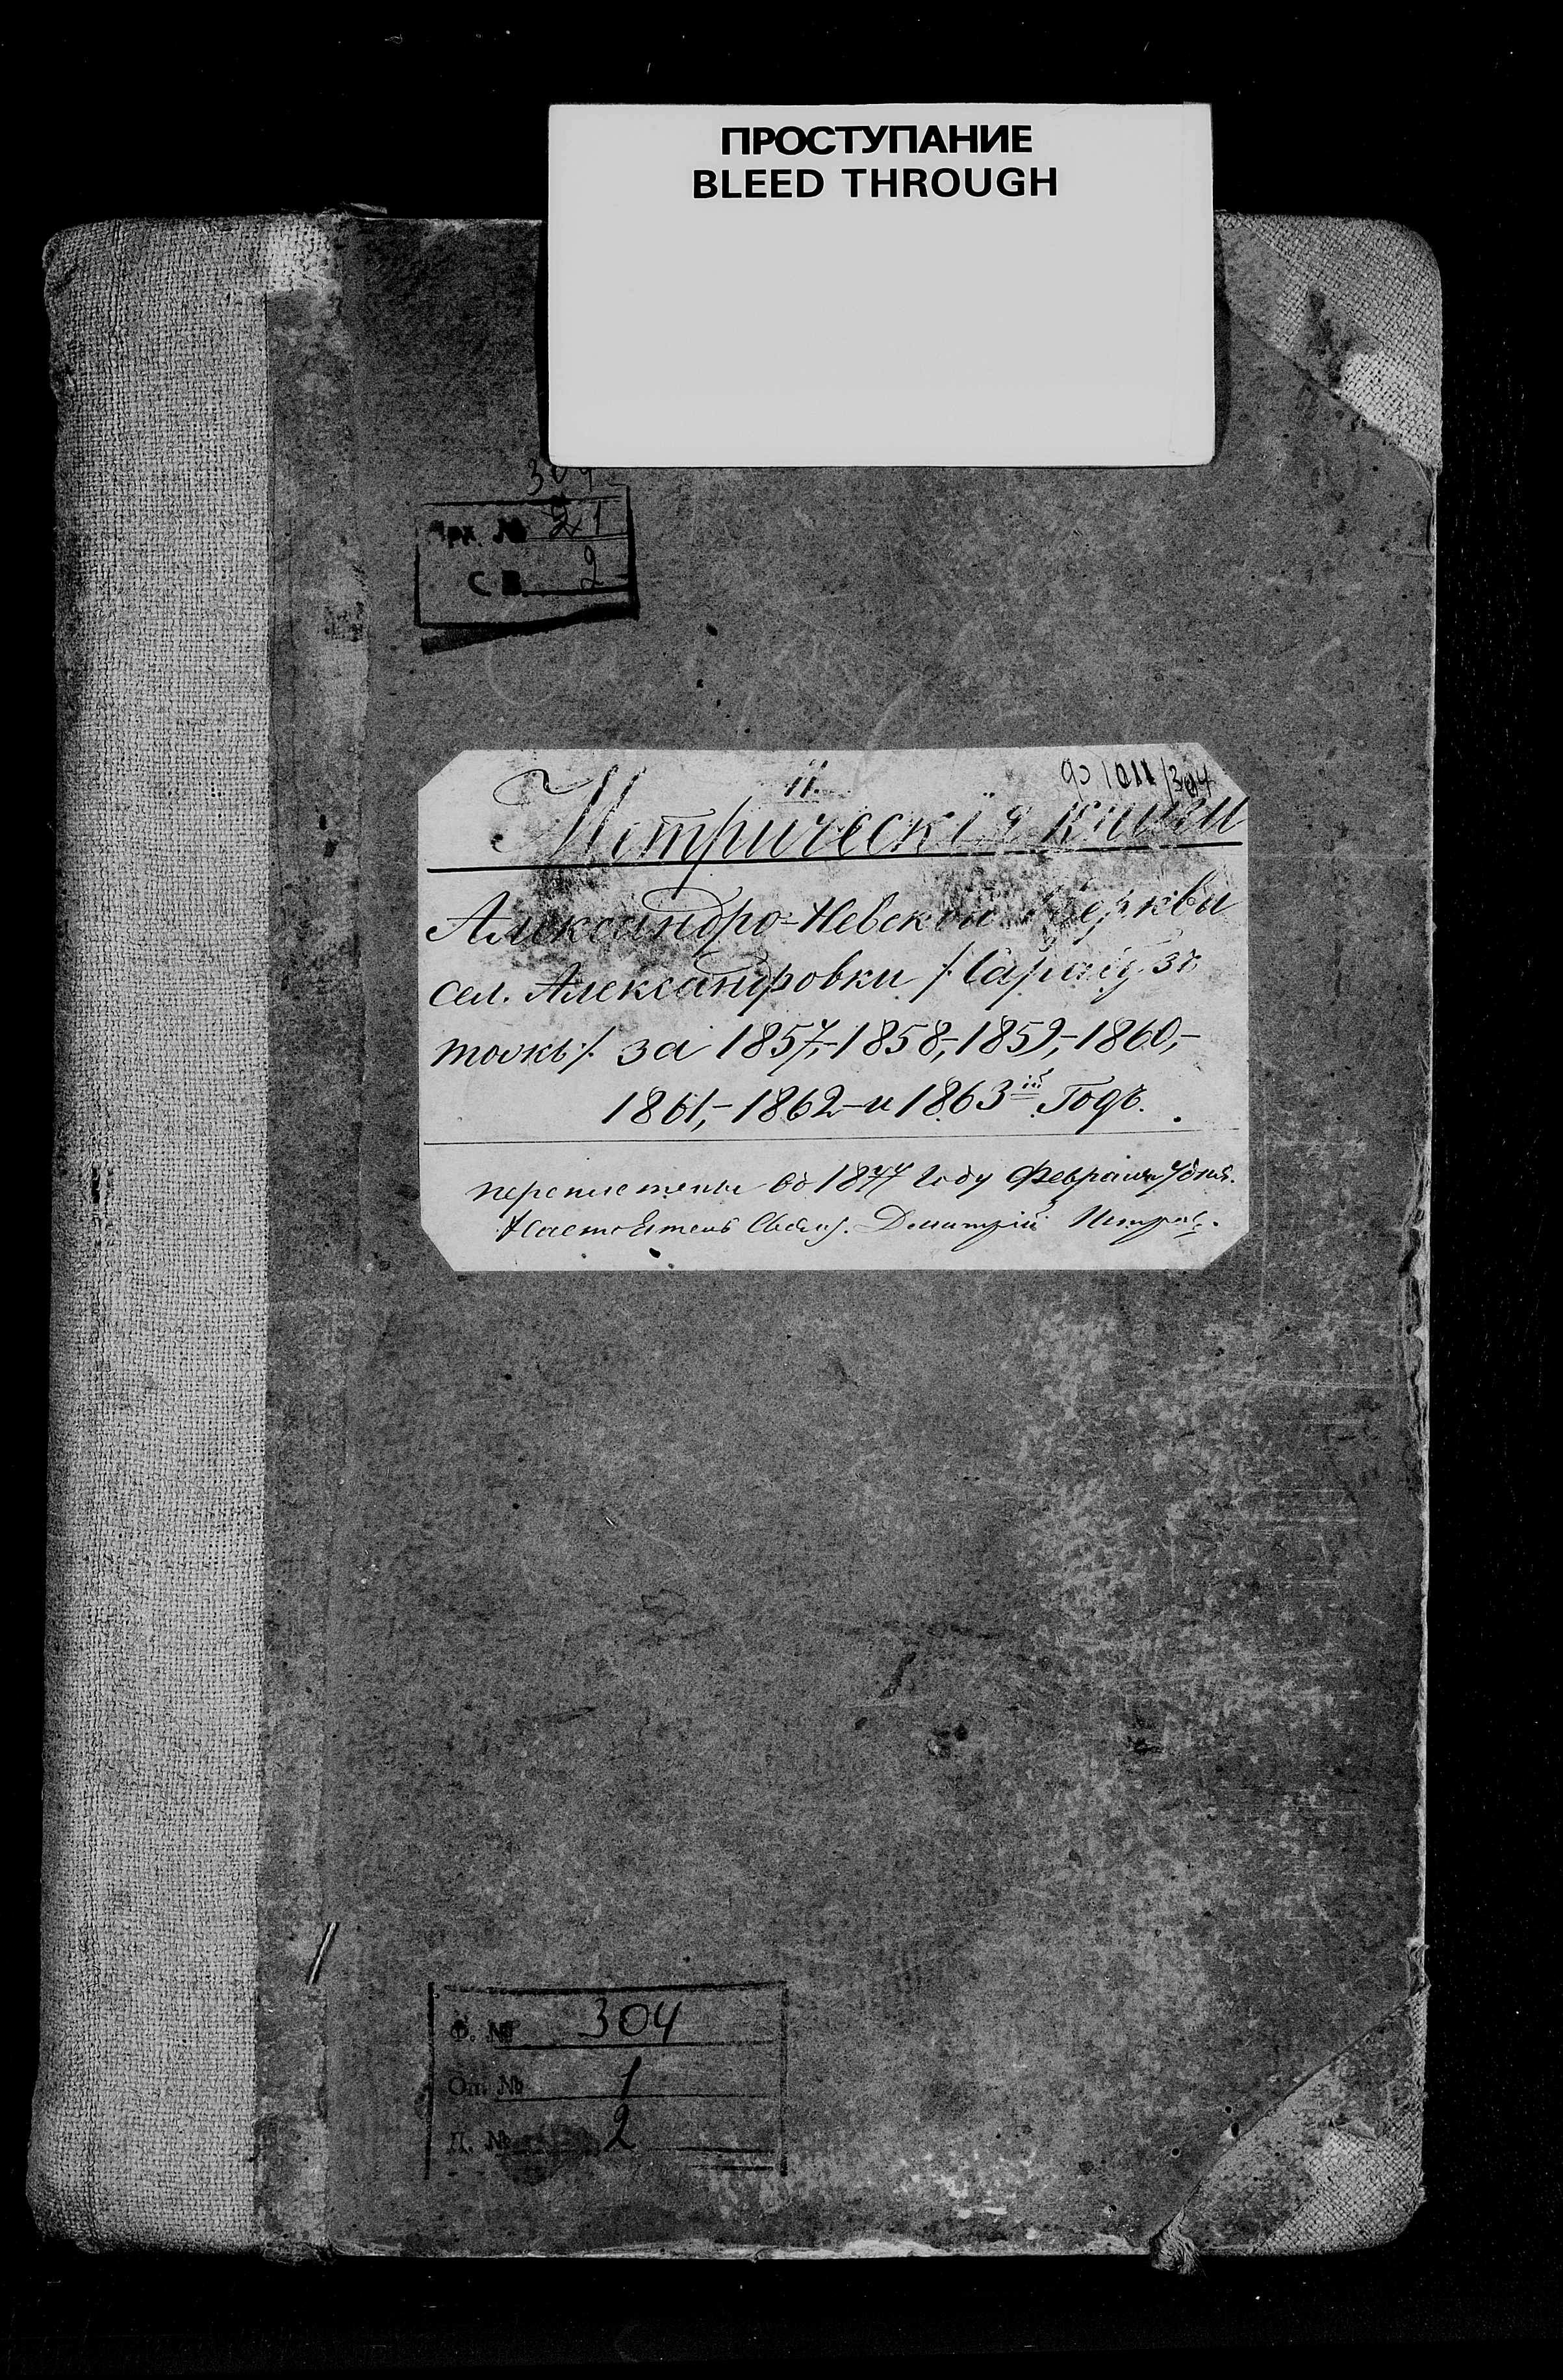 ПРОСТУПАНИЕ
BLEED THROUGH
304
Арх. № 21
С В 2
II.
Метрическія книги
Александро-Невской Церкви
сел. Александровки /
за 1857,-1858,-1859,-1860,-
1861,-1862-и 1863ій Годъ.
переплетены въ 1877 году Февраля
Настоятель Дмитрій
Ф. № 304
Оп. № 1
Д. № 2